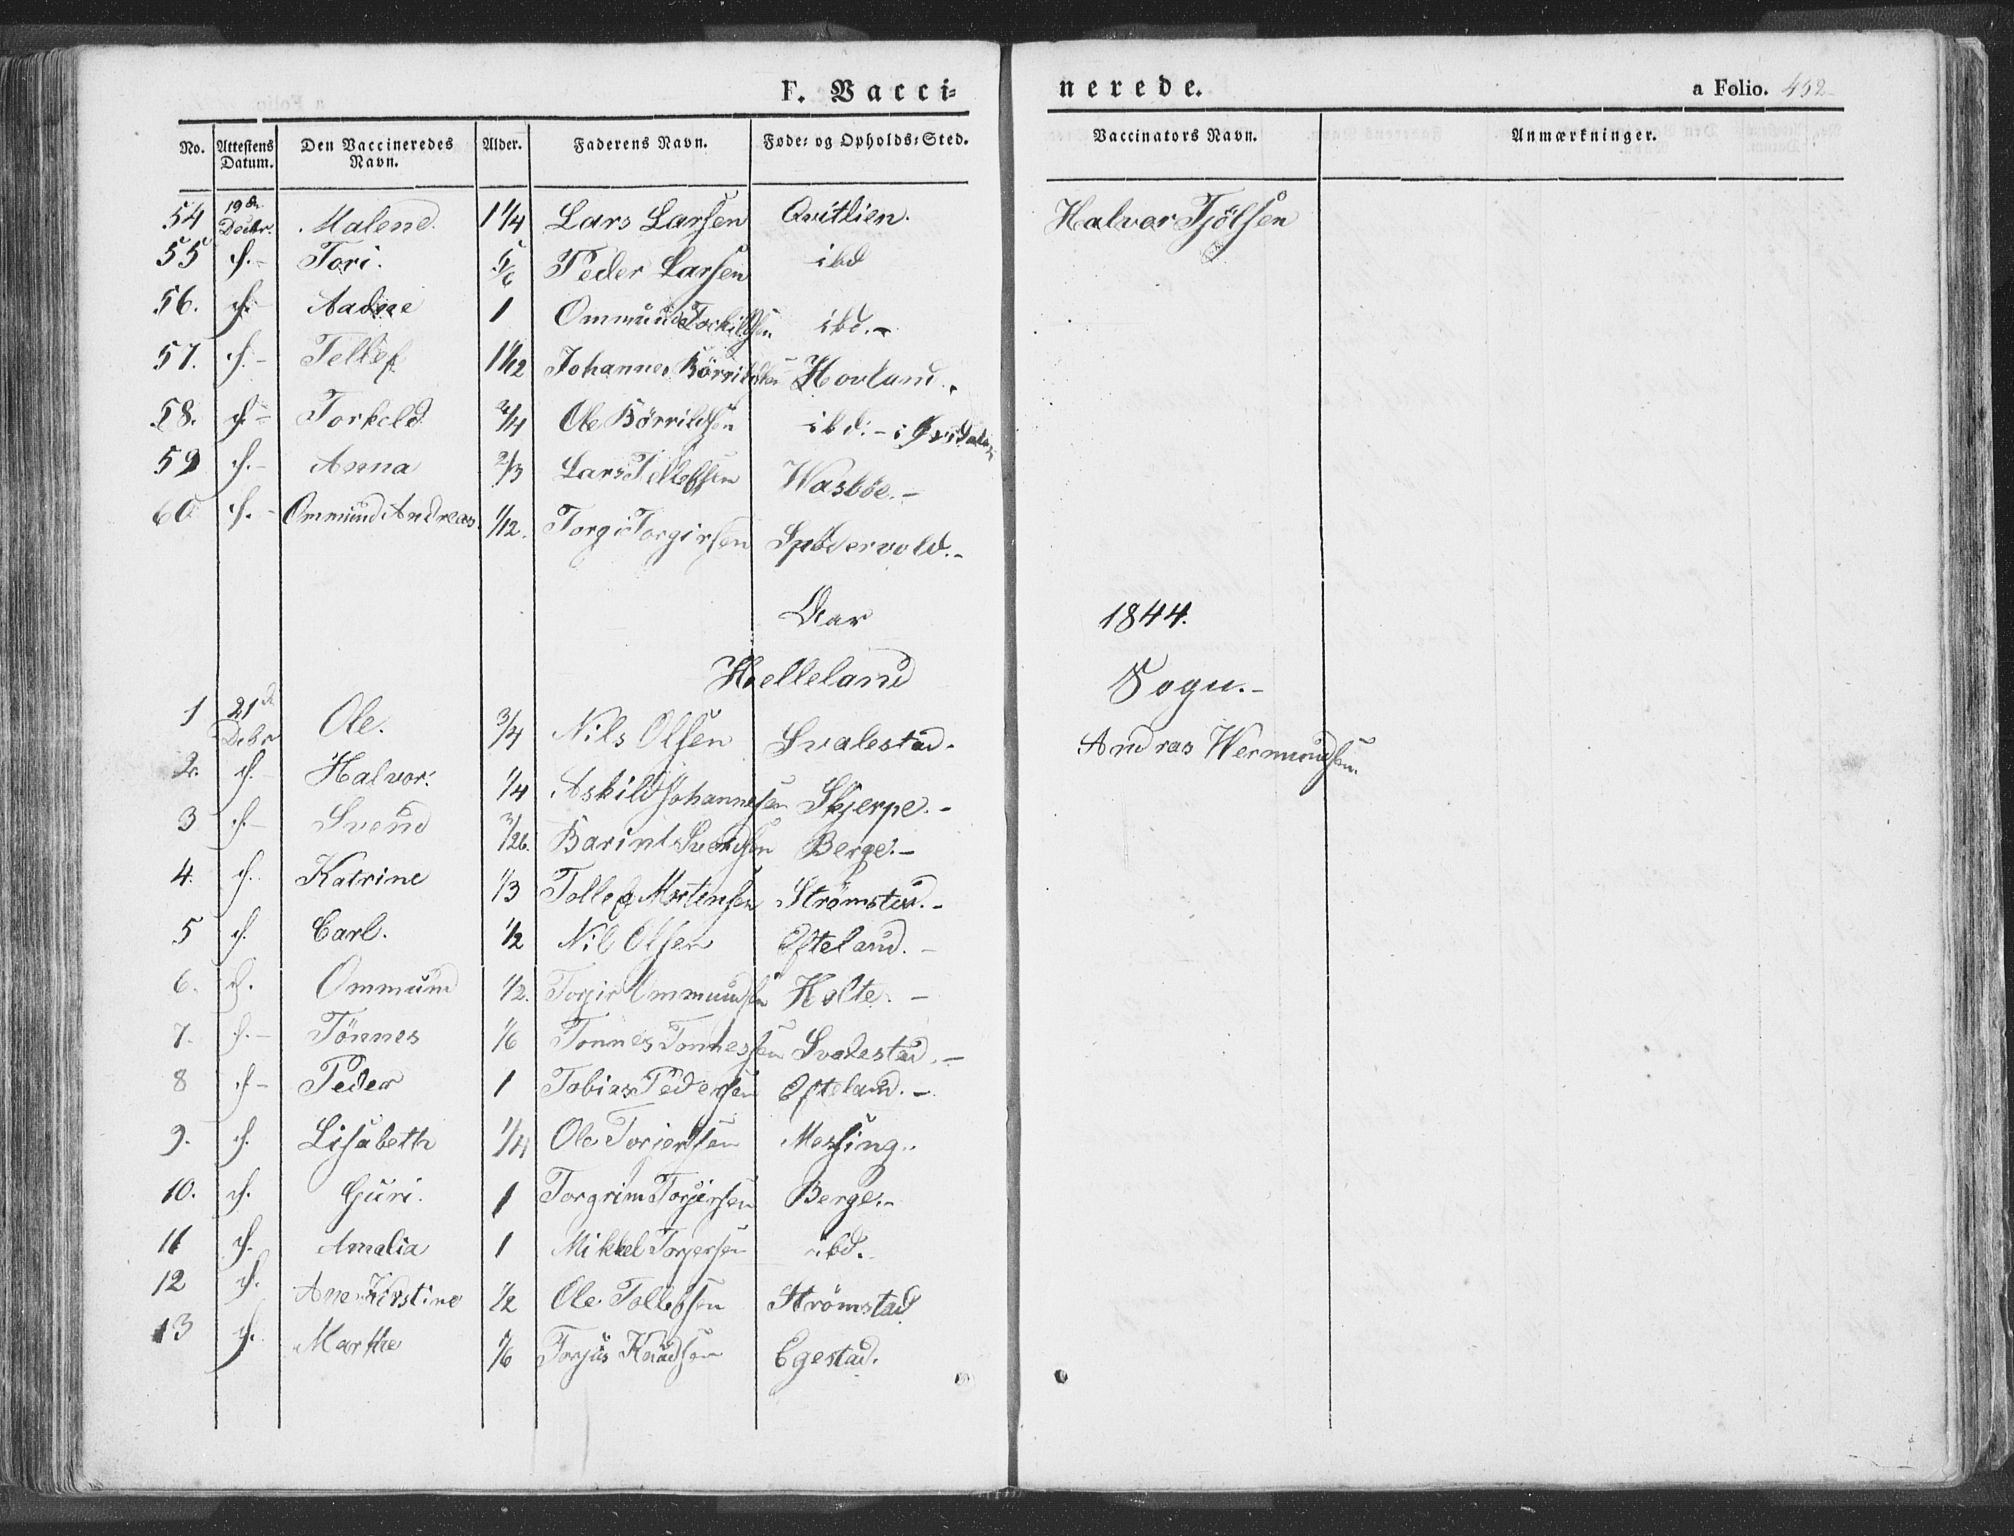 F. Vaccinerede. a Folio. 452
No. Attestens Datum. Den Vaccineredes Navn. Alder. Faderens Navn. Føde- og Opholds-Sted. Vaccinators Navn. Anmærkninger.
54 19de Decbr. Malene. 1 1/4 Lars Larsen Qvitlien. Halvor Tjölsen
55 d.- Tori. 5/6 Peder Larsen ibd
56. d.- Aadne 1 Ommund Torkildsen ibd.-
57. d.- Tellef 1 1/12 Johannes Börrildsen Hovland.
58. d.- Torkeld 2/4 Ole Börrildsen ibd.- i
59 d.- Anna 2/3 Lars Tellefsen Wasböe.-
60 d.- Ommund Andreas. 1/12. Torgi Torgirsen Spödervold.-
Aar 1844.
Helleland Sogn.-
1 21de Debr Ole. 3/4 Nils Olsen Svalestad. Andras Wermundsen.
2. d.- Halvor. 1/4 Askild Johannesen Skjerpe.-
3 d.- Svend 3/26. Barint Svendsen Berge.-
4. d. Katrine 1/3 Tollef Mortensen Strömstad.-
5 d. Carl. 1/2 Nil Olsen Efteland.-
6. d. Ommund 1/2. Torjir Ommundsen Holte.-
7. d.- Tönnes 1/6 Tonnes Tonnessen Svalestad.-
8 d- Peder 1 Tobias Pedersen Efteland.-
9. d. Lisabeth 1/4 Ole Torjersen Messing.
10. d. Guri. 1 Torgrim Torjersen Berge.-
11 d. Amalia 1 Mikkel Torjersen ibd.
12 d. Ane Kirstine 1/2 Ole Tollefsen Strömstad
13 d. Marthe 1/6 Torjus Knudsen Egestad.